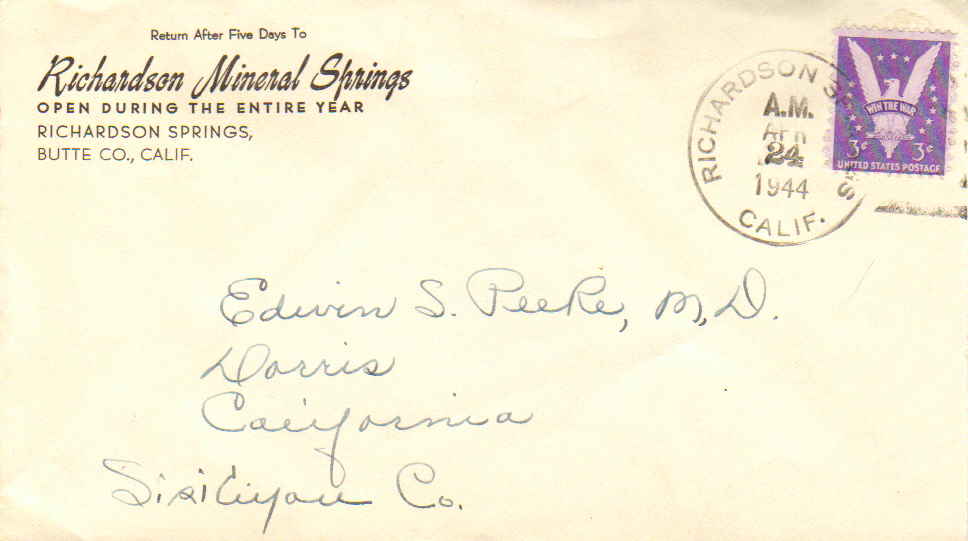 Return After Five Days To
Richardson Mineral Springs
OPEN DURING THE ENTIRE YEAR
RICHARDSON SPRINGS,
BUTTE CO., CALIF.
RICHARDSON SPRINGS
A.M.
APR
24
1944
CALIF.
WIN THE WAR
3¢ 3¢
UNITED STATES POSTAGE
Edwin S. Peeke, M.D.
Dorris
California
Sisikiyou Co.